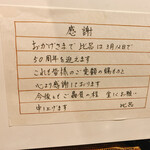 感謝
おかげさまで 比呂は3月16日で
50周年を迎えます
これも皆様のご愛顧の賜ものと
心より感謝しております
今後もご贔屓の程 宜しくお願い
申し上げます
比呂